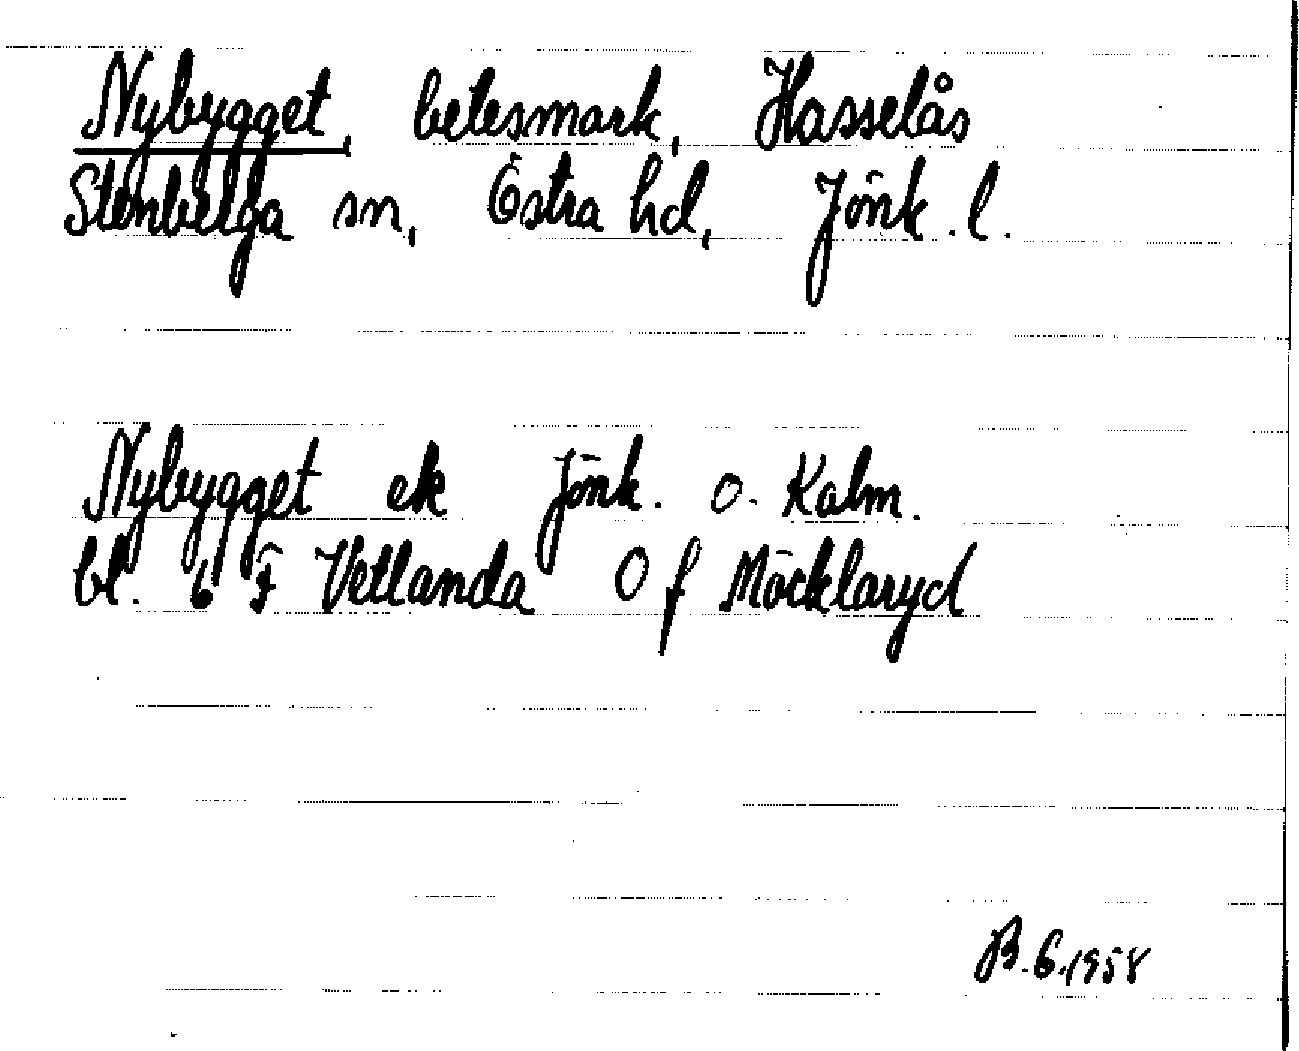 Nybygget, betesmark, Hasselås
Stenberga sn, Östra hd, Jönk. l.
Nybygget ek Jönk. o. Kalm.
bl. 6 F Vetlanda 0 f Möcklaryd
B.G. 1958